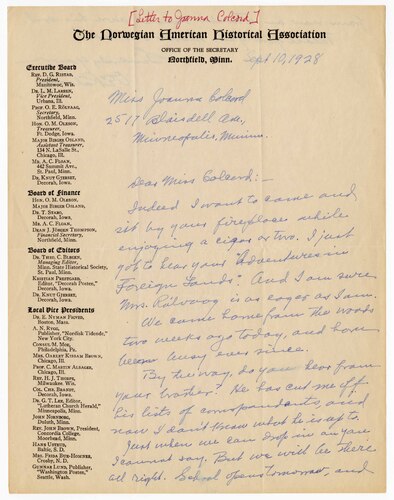 [Letter to Joanna Colcord]
The Norwegian American Historical Association
OFFICE OF THE SECRETARY
Northfield, Minn.
Sept 10, 1928
Executive Board
REV. D. G. RISTAD,
President,
Manitowoc, Wis.
DR. L. M. LARSON,
Vice President,
Urbana, Ill.
PROF. O. E. RÖLVAAG,
Secretary,
Northfield, Minn.
HON. O. M. OLESON,
Treasurer,
Ft. Dodge, Iowa.
MAJOR BIRGER OSLAND,
Assistant Treasurer,
134 N. LaSalle St.,
Chicago, Ill.
MR. A. C. FLOAN,
442 Summit Ave.,
St. Paul, Minn.
DR. KNUT GJERSET,
Decorah, Iowa.
Board of Finance
HON. O. M. OLESON,
MAJOR BIRGER OSLAND,
DR. T. STABO,
Decorah, Iowa.
MR. A. C. FLOAN,
DEAN J. JÖRGEN THOMPSON,
Financial Secretary,
Northfield, Minn.
Board of Editors
DR. THEO. C. BLEGEN,
Managing Editor,
Minn. State Historical Society,
St. Paul, Minn.
KRISTIAN PRESTGARD,
Editor, "Decorah Posten,"
Decorah, Iowa.
DR. KNUT GJERSET,
Decorah, Iowa.
Local Vice Presidents
DR. E. NYMAN FIGVED,
Boston, Mass.
A. N. RYGG,
Publisher, "Nordisk Tidende,"
New York City.
CONSUL M. MOE,
Philadelphia, Pa.
MRS. OAKLEY KISSAM BROWN,
Chicago, Ill.
PROF. C. MARTIN ALSAGER,
Chicago, Ill.
REV. H. J. THORPE,
Milwaukee, Wis.
COL. CHR. BRANDT,
Decorah, Iowa.
DR. G. T. LEE, Editor,
"Lutheran Church Herald,"
Minneapolis, Minn.
JOHN NORNBORG,
Duluth, Minn.
REV. JOHN BROWN, President,
Concordia College,
Moorhead, Minn.
HANS USTRUD,
Baltic, S. D.
MRS. FRIDA BUE-HOMNES,
Crosby, N. D.
GUNNAR LUND, Publisher,
"Washington Posten,"
Seattle, Wash.
Miss Joanna Colcord
2517 Blaisdell Ave,
Minneapolis, Minn.
Dear Miss Colcord:-
Indeed I want to come and
sit by your fireplace while
enjoying a cigar or two. I just
got to hear your "Adventures in
Foreign Lands". And I am sure
Mrs. Rölvaag is as eager as I am.
We came home from the woods
two weeks ago today, and have
been away ever since.
By the way, do you hear from
your brother? He has cut me off
his lists of correspondents, and
now I don't know what he is up to.
Just when we can drop in on you
I cannot say. But we will be there
all right. School opens tomorrow, and